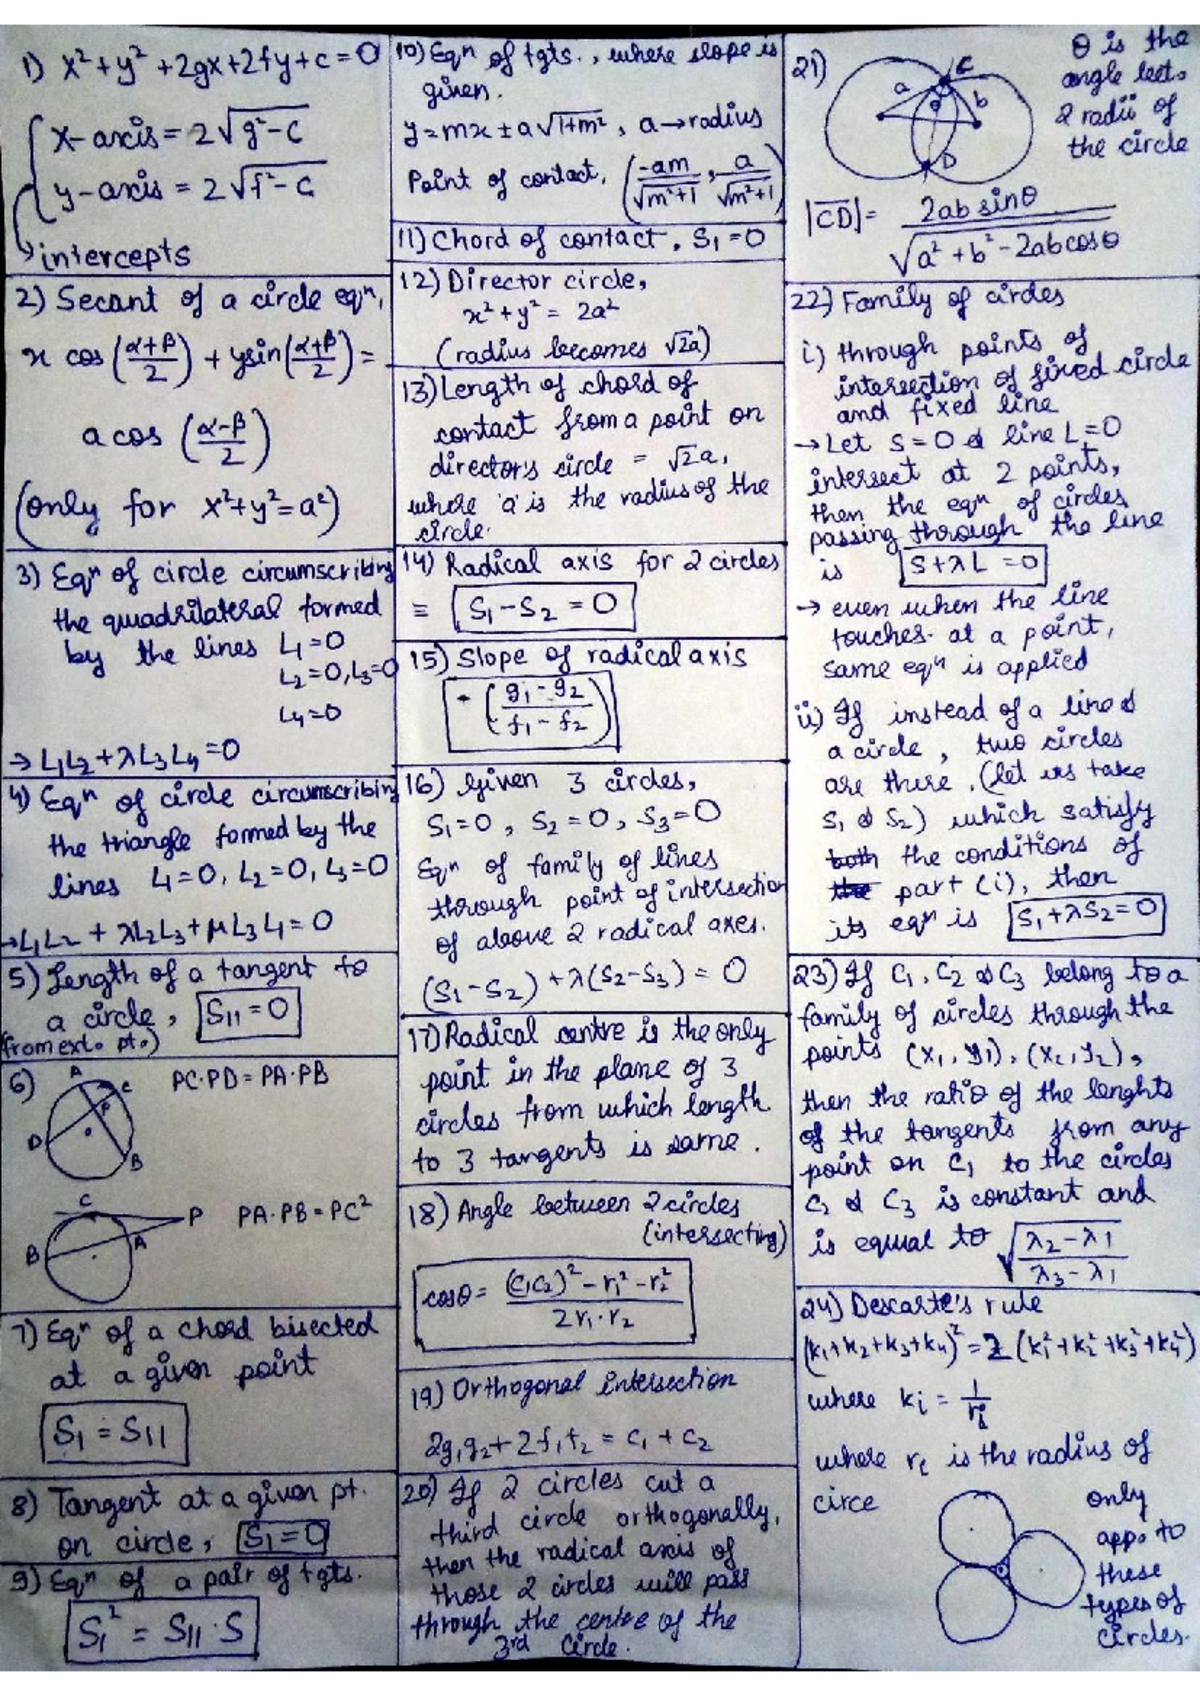 1) x²+y²+2gx+2fy+c=0
x-axis = 2√(g²-c)
y-axis = 2√(f²-c)
intercepts
2) Secant of a circle eqⁿ,
x cos((α+β)/2) + y sin((α+β)/2) =
a cos((α-β)/2)
(only for x²+y²=a²)
3) Eqⁿ of circle circumscribing
the quadrilateral formed
by the lines L₁=0
L₂=0, L₃=0
L₄=0
→ L₁L₂+λL₃L₄=0
4) Eqⁿ of circle circumscribing
the triangle formed by the
lines L₁=0, L₂=0, L₃=0
→ L₁L₂ + λL₂L₃ + μL₃L₁ = 0
5) Length of a tangent to
a circle, S₁₁=0
from ext. pt.)
6) A C PC·PD = PA·PB
P
D B
C P PA·PB = PC²
B A
7) Eqⁿ of a chord bisected
at a given point
S₁ = S₁₁
8) Tangent at a given pt.
on circle, S₁=0
9) Eqⁿ of a pair of tgts.
S₁² = S₁₁·S
10) Eqⁿ of tgts., where slope is
given.
y=mx±a√(1+m²), a→radius
Point of contact, (-am/√(m²+1), a/√(m²+1))
11) Chord of contact, S₁=0
12) Director circle,
x²+y² = 2a²
(radius becomes √2a)
13) Length of chord of
contact from a point on
director's circle = √2a,
where 'a' is the radius of the
circle.
14) Radical axis for 2 circles
≡ S₁-S₂ = 0
15) Slope of radical axis
-((g₁-g₂)/(f₁-f₂))
16) Given 3 circles,
S₁=0, S₂=0, S₃=0
Eqⁿ of family of lines
through point of intersection
of above 2 radical axes.
(S₁-S₂)+λ(S₂-S₃) = 0
17) Radical centre is the only
point in the plane of 3
circles from which length
to 3 tangents is same.
18) Angle between 2 circles
(intersecting)
cosθ = ((C₁C₂)²-r₁²-r₂²)/(2r₁·r₂)
19) Orthogonal intersection
2g₁g₂+2f₁f₂ = c₁+c₂
20) If 2 circles cut a
third circle orthogonally,
then the radical axis of
those 2 circles will pass
through the centre of the
3rd circle.
21) C θ is the
a θ b angle bet.
2 radii of
D the circle
|CD| = 2ab sinθ/√(a²+b²-2abcosθ)
22) Family of circles
i) through points of
intersection of fixed circle
and fixed line
→ Let S=0 & line L=0
intersect at 2 points,
then the eqⁿ of circles
passing through the line
is S+λL=0
→ even when the line
touches at a point,
same eqⁿ is applied
ii) If instead of a line &
a circle, two circles
are there. (let us take
S₁ & S₂) which satisfy
both the conditions of
the part (i), then
its eqⁿ is S₁+λS₂=0
23) If C₁, C₂ & C₃ belong to a
family of circles through the
points (x₁,y₁), (x₂,y₂),
then the ratio of the lenghts
of the tangents from any
point on C₁ to the circles
C₂ & C₃ is constant and
is equal to √((λ₂-λ₁)/(λ₃-λ₁))
24) Descarte's rule
(k₁+k₂+k₃+k₄)²=2(k₁²+k₂²+k₃²+k₄²)
where kᵢ = 1/rᵢ
where rᵢ is the radius of
circe only
app. to
these
types of
circles.